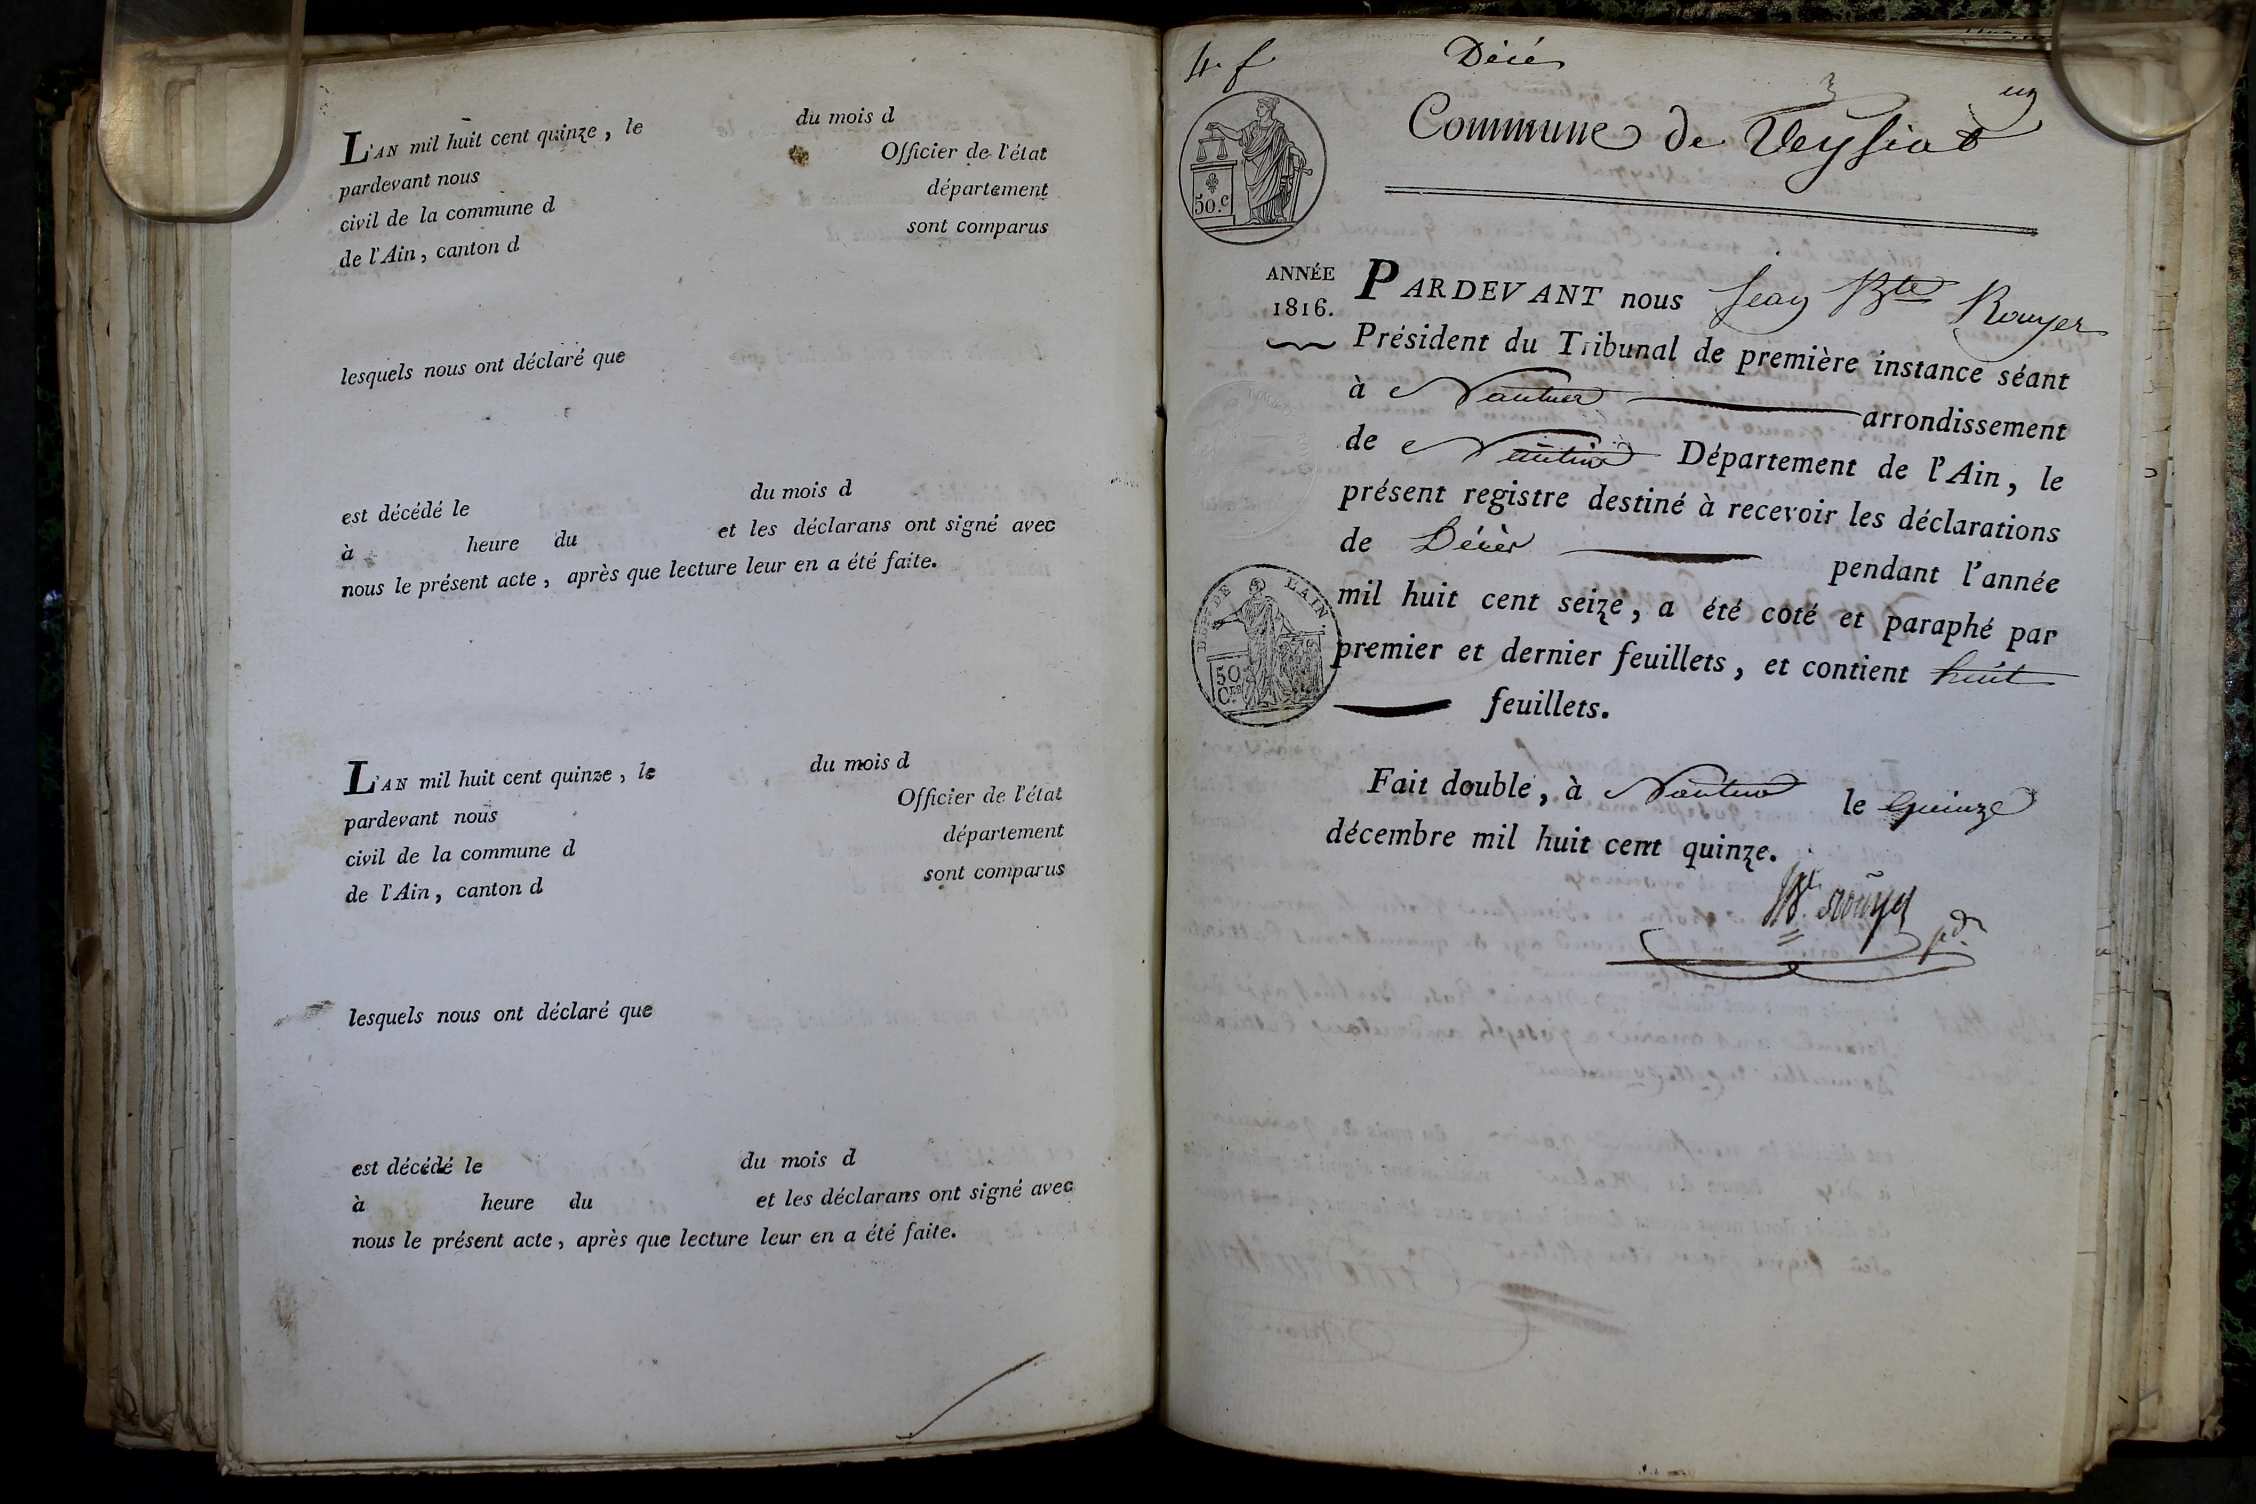 L'AN mil huit cent quinze, le du mois d
pardevant nous Officier de l'état
civil de la commune d département
de l'Ain, canton d sont comparus
lesquels nous ont déclaré que
est décédé le du mois d
à heure du et les déclarans ont signé avec
nous le présent acte, après que lecture leur en a été faite.
L'AN mil huit cent quinze, le du mois d
pardevant nous Officier de l'état
civil de la commune d département
de l'Ain, canton d sont comparus
lesquels nous ont déclaré que
est décédé le du mois d
à heure du et les déclarans ont signé avec
nous le présent acte, après que lecture leur en a été faite.
4 f
Décés
un
Commune de Veysiat
50.c
ANNÉE
1816.
PARDEVANT nous Jean Bte Rouyer
Président du Tribunal de première instance séant
à Nantua arrondissement
de Nantua Département de l'Ain, le
présent registre destiné à recevoir les déclarations
de Décès pendant l'année
mil huit cent seize, a été coté et paraphé par
premier et dernier feuillets, et contient huit
feuillets.
DEPT DE L'AIN
50
Cen
Fait double, à Nantua le quinze
décembre mil huit cent quinze.
Bte rouyer pdt